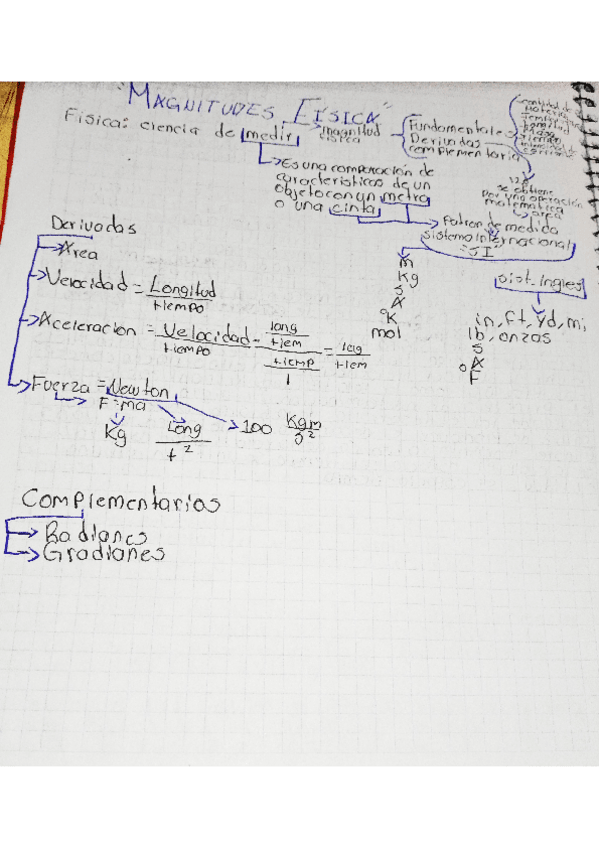 "MAGNITUDES FÍSICA"
Física: ciencia de medir
magnitud
física
Fundamentales
Derivadas
complementaria
cantidad de
materia
longitud
masa
tiempo
se obtiene
por una operación
matematica
área
Es una comparación de
caracteristicas de un
objeto con un metro
o una cinta
Patron de medida
sistema Internacional
"SI"
m
Kg
s
A
°K
mol
sist. Ingles
in, ft, yd, mi
lb, onzas
s
A
°F
Derivadas
Area
Velocidad = Longitud
tiempo
Aceleracion = Velocidad = long
tiempo tiem
tiemp
1
= long
tiem
Fuerza = Newton
F = ma
Kg
Long
t²
100 Kgm
s²
Complementarios
Radianes
Gradianes